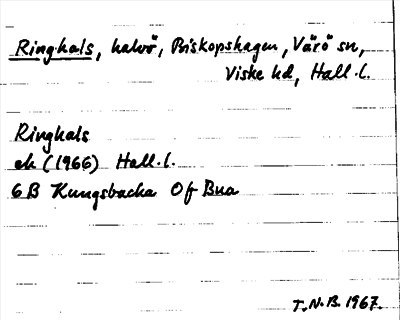 Ringhals, halvö, Biskopshagen, Värö sn,
Viske hd, Hall. l.
Ringhals
ek (1966) Hall. l.
6 B Kungsbacka Of Bua
T.N.B. 1967.